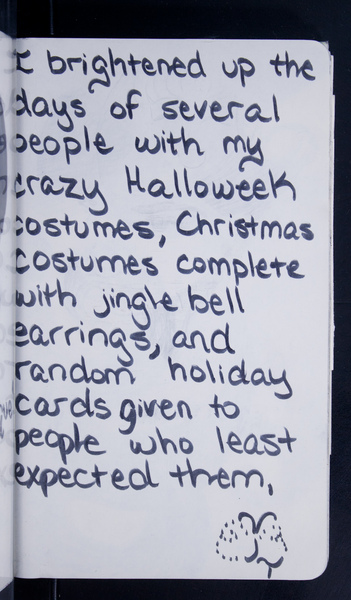 I brightened up the
days of several
people with my
crazy Halloweek
costumes, Christmas
costumes complete
with jingle bell
earrings, and
random holiday
cards given to
people who least
expected them,